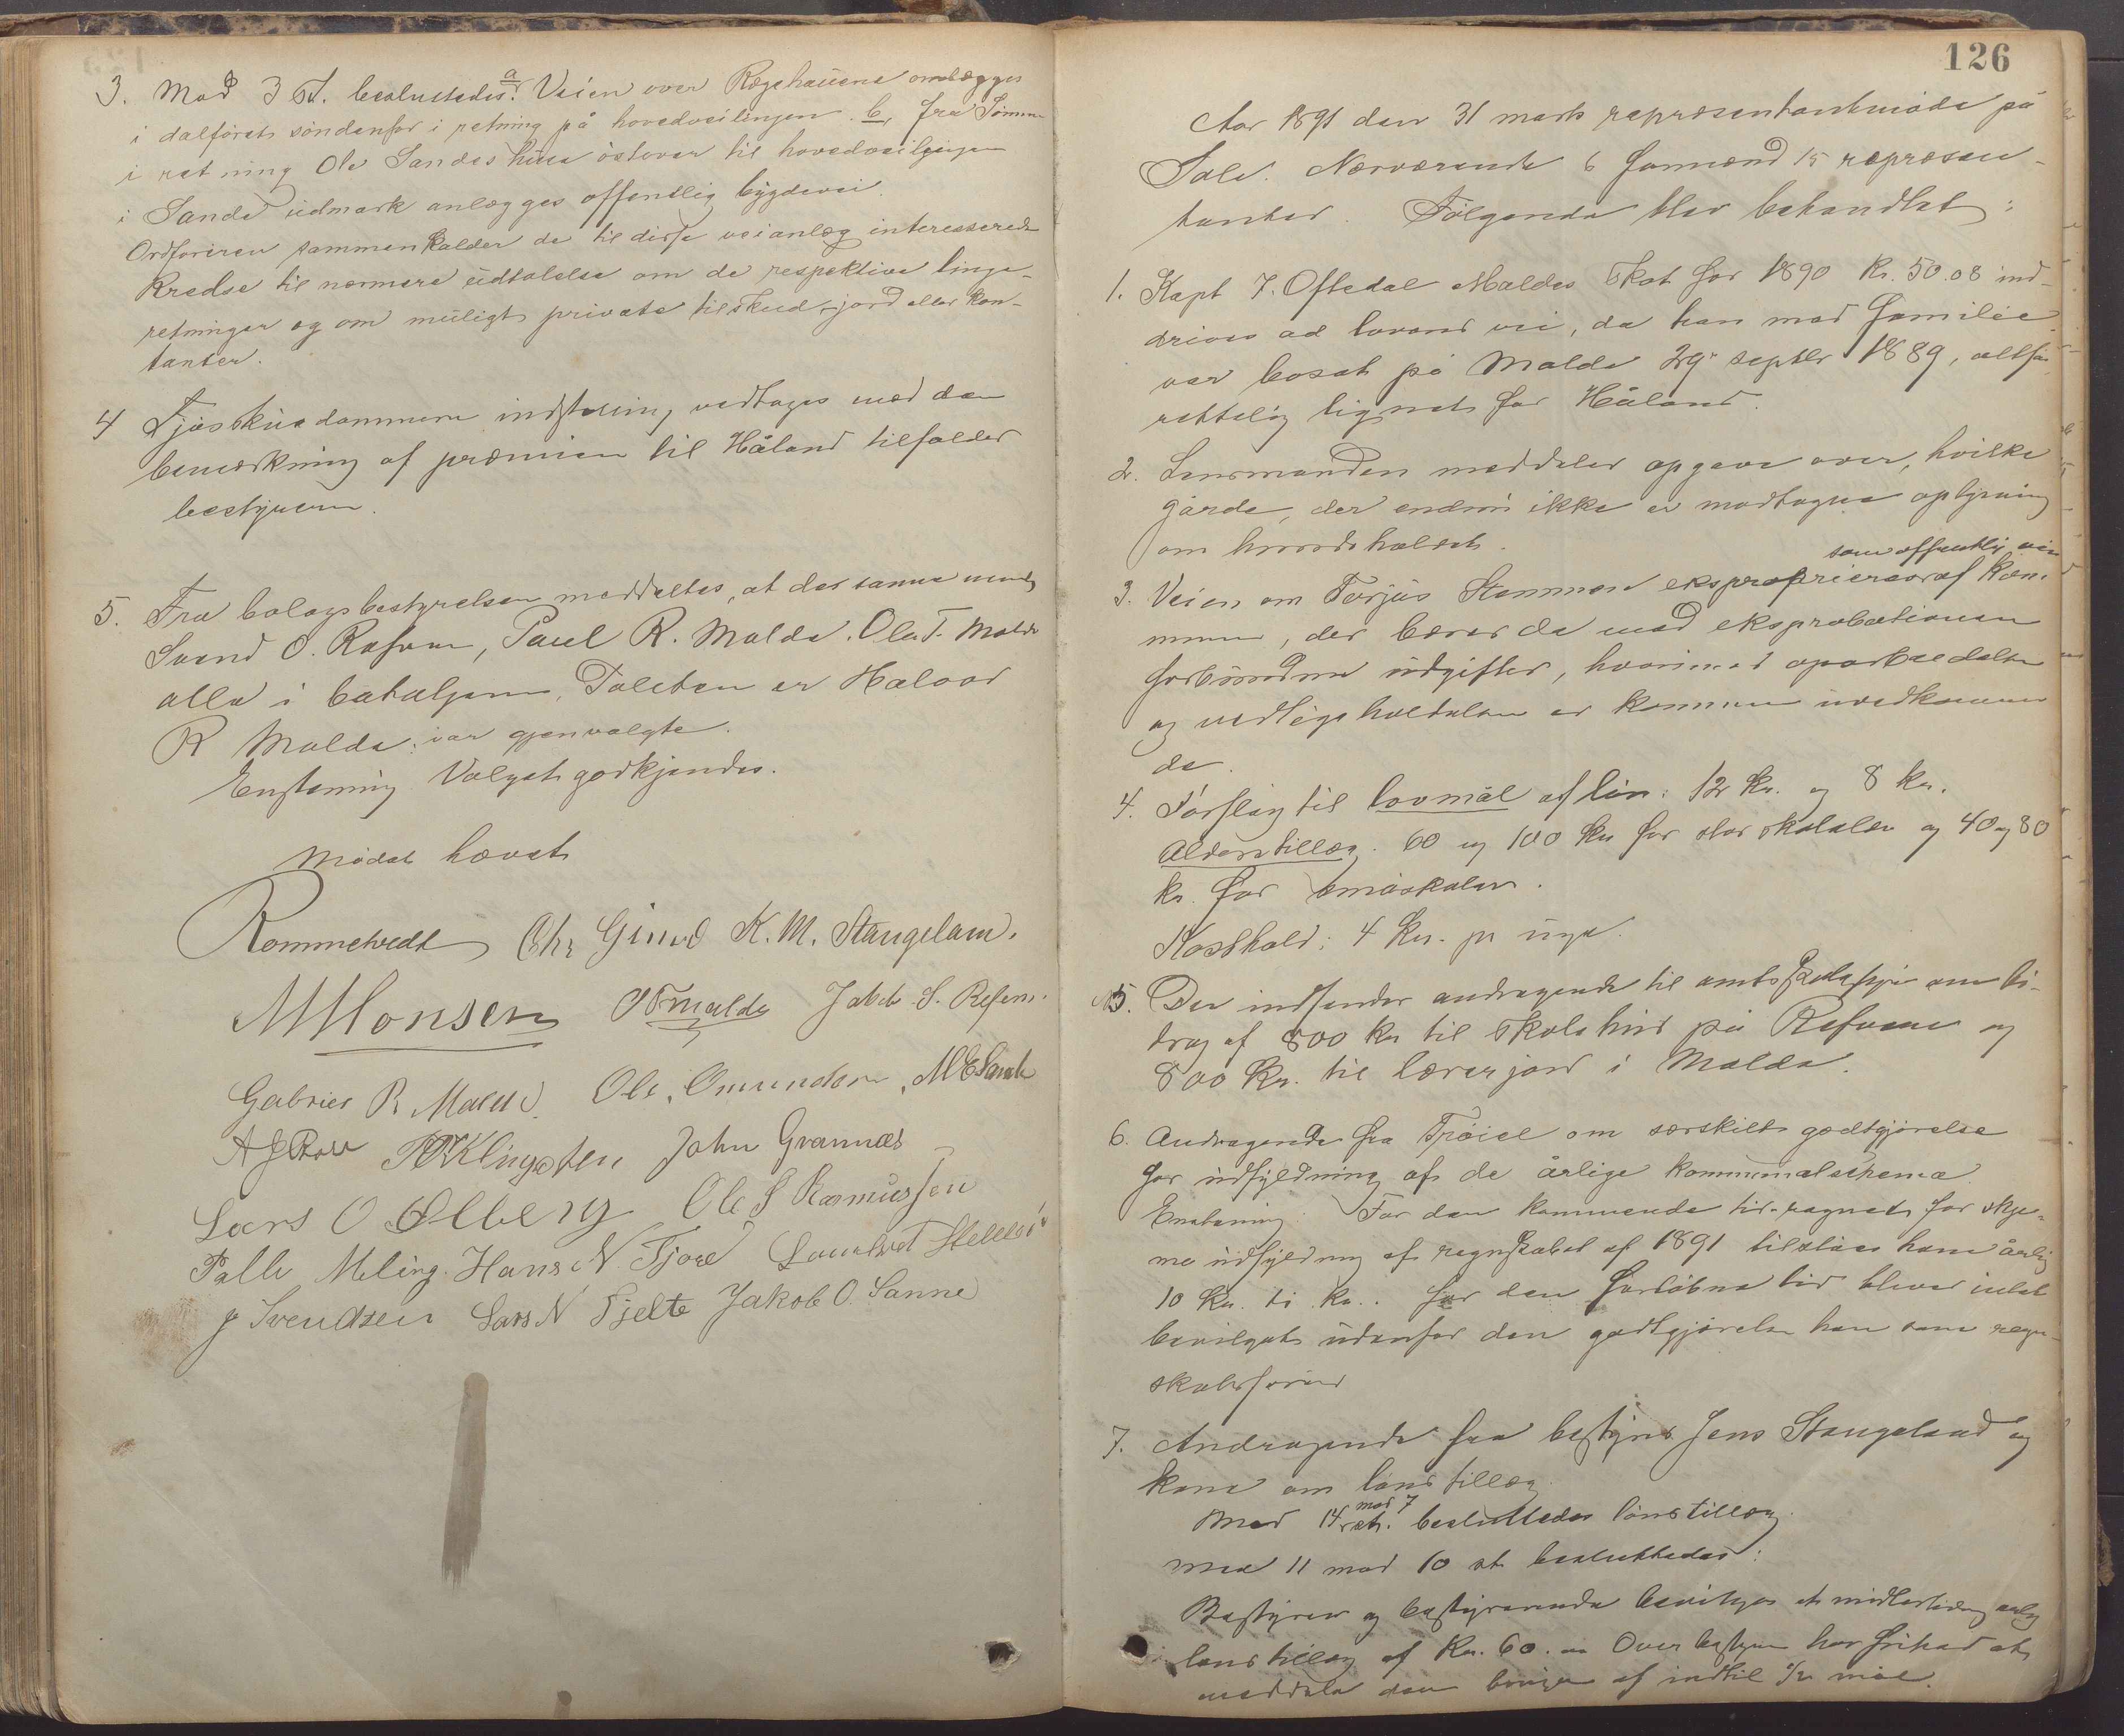 3. Mod 3 St. besluttedes: a Veien over Rægehauene omlægges
i dalföret söndenfor i retning på hovedveilinjen. b, fra Sömme
i retning Ole Sandes huse östover til hovedveilinjen
i Sande udmark anlægges offentlig bygdevei.
Ordföreren sammenkalder de til disse veianlæg interesserede
kredse til nærmere udtalelse om de respektive linje-
retninger og om muligt private tilskud, jord eller kon-
tanter.
4 indstilling vedtages med den
bemærkning af præmien til Håland tilfalder
bestyreren.
5. Fra bolagsbestyrelsen meddeltes, at der
Svend O. Refsnes, Paul R. Malde. Ola T. Malde
alle i Halvor
R Malde, var gjenvalgte.
Enstemmig Valget godkjendes.
Mödet hævet
Rommetvedt Chr Gimre K. M. Stangeland.
M Monsen O T Malde Jakob S. Refsnes.
Gabriel R. Malde. Ole. Omundsen, M E Sande
T R Klingsten John Grannæs
Lars O Ølberg Ole S Rasmussen
Palle Meling. Hans N. Tjore
J Svendsen Lars N Tjelte Jakob O. Sanne
126
Aar 1891 den 31 marts repræsentantmöde på
Sole. Nærværende 6 formænd 15 repræsen-
tanter. Fölgende blev behandlet:
1. Kapt 7. Oftedal Maldes skat for 1890 Kr. 50.08 ind-
drives ad lovens vei, da han med familie
var bosat på Malde 29de septbr 1889, altså
rettelig lignet for Håland.
2. Lensmanden meddeles opgave over, hvilke
gårde, der endnu ikke er modtagne oplysning
om hundeholdet.
som offentlig vei
3. Veien om Torjus Stemmen eksproprieres af kom-
munen, der bærer de med eksprobationen
forbundne udgifter, hvorimod oparbeidelsen
og vedligeholdelsen er kommunen uvedkommen
de.
4. Forslag til lovmål af lön: 12 kr. og 8 kr.
Alderstillæg. 60 og 100 kr for storskolelær og 40 og 80
kr. for småskolen.
Kosthold: 4 kr. pr uge.
5. Der indsendes andragende til amtsskolestyre om bi-
drag af 800 kr til skolehus på Refsnes og
800 Kr. til lærerjord i Malde.
6. Andragende fra Tröiel om særskilt godtgjörelse
for udfyldning af de årlige kommunalschema.
Enstemmig: For den kommende tid regnet for skje-
ma udfyldning af regnskabet af 1891 tilståes ham årlig
10 Kr. ti kr. For den forlöbne tid blever intet
bevilget udenfor den godtgjörelse han som regn-
skabsförer
7. Andragende fra bestyrer Jens Stangeland og
kone om lönstillæg.
Med 14 mod 7 st. besluttedes lönstillæg.
Med 11 mod 10 st besluttedes:
Bestyrer og bestyrerinde bevilges et midlertidig årlig
lönstillæg af Kr. 60. Overbestyren har frihed at
meddele dem brugen af indtil 1/2 mål.